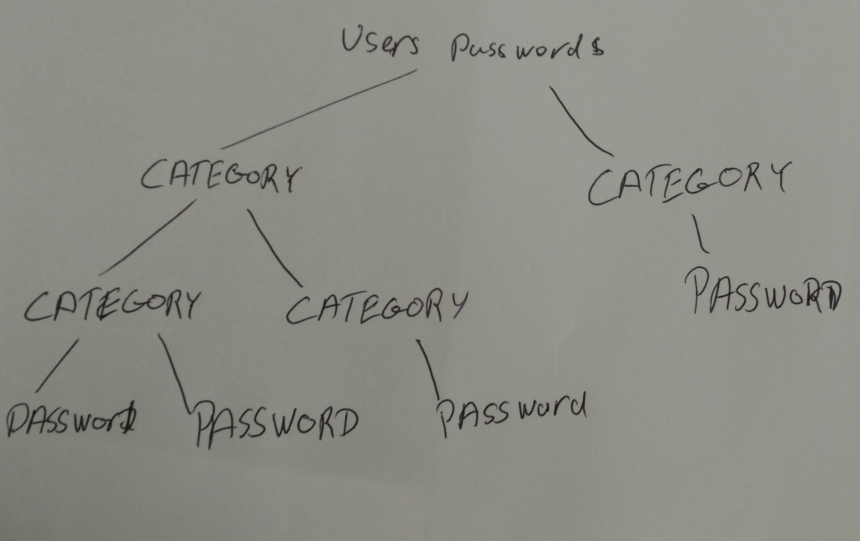 Users Passwords
CATEGORY CATEGORY
CATEGORY CATEGORY PASSWORD
PASSword PASSWORD PASSword